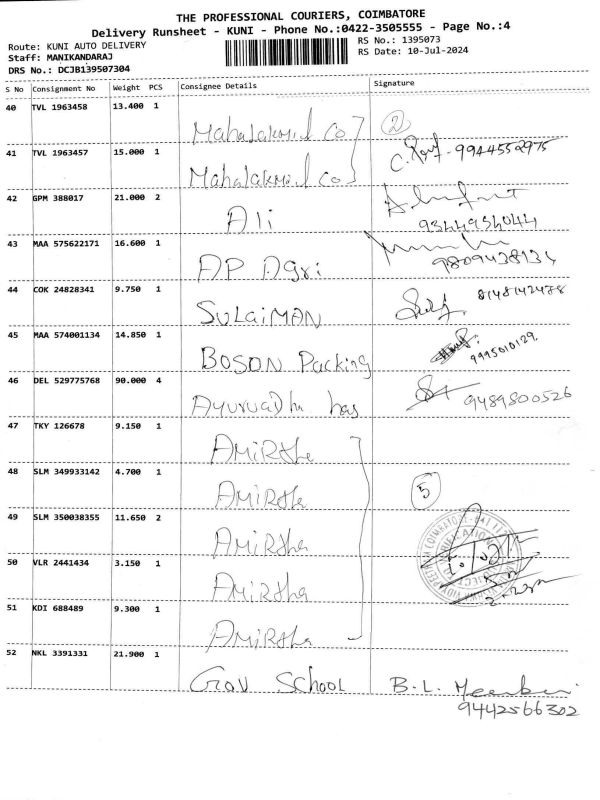 THE PROFESSIONAL COURIERS, COIMBATORE
Delivery Runsheet - KUNI - Phone No.:0422-3505555 - Page No.:4
Route: KUNI AUTO DELIVERY
RS No.: 1395073
Staff: MANIKANDARAJ
RS Date: 10-Jul-2024
DRS No.: DCJB139507304
S No Consignment No Weight PCS Consignee Details Signature
40 TVL 1963458 13.400 1 Mahalakmil Co
2
41 TVL 1963457 15.000 1 Mahalakmil Co
C. 9944552975
42 GPM 388017 21.000 2 Ali
9344954044
43 MAA 575622171 16.600 1 AP Agri
9809438134
44 COK 24828341 9.750 1 SULAIMAN
8148142478
45 MAA 574001134 14.850 1 BOSON Packing
9995010129
46 DEL 529775768 90.000 4 Ayurvadha has
9489800526
47 TKY 126678 9.150 1 AMIRtha
48 SLM 349933142 4.700 1 AMIRtha
5
49 SLM 350038355 11.650 2 AMIRtha
50 VLR 2441434 3.150 1 AMIRtha
51 KDI 688489 9.300 1 AMIRtha
52 NKL 3391331 21.900 1 Gov School
B. L.
9442566302